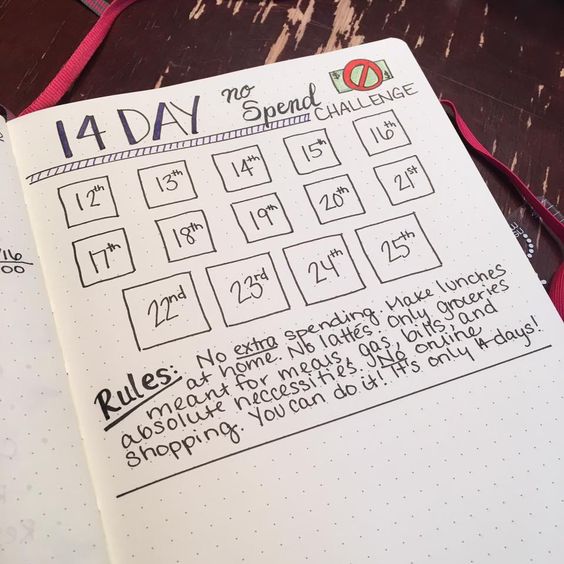 14 DAY no Spend CHALLENGE
12th 13th 14th 15th 16th
17th 18th 19th 20th 21st
22nd 23rd 24th 25th
Rules: No extra spending. Make lunches
at home. No lattés. Only groceries
meant for meals, gas, bills, and
absolute neccessities. No online
shopping. You can do it! It's only 14 days!